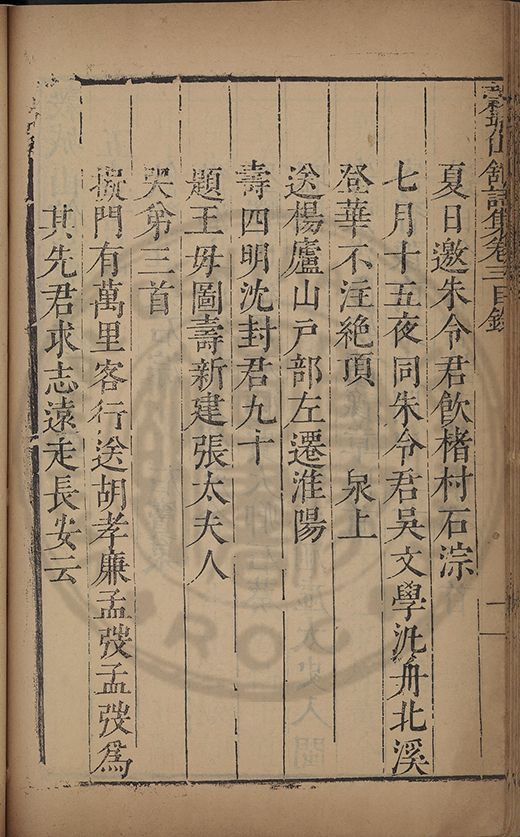 穀城山館詩集卷三目錄
夏日邀朱令君飲楮村石淙
七月十五夜同朱令君吳文學汎舟北溪
登華不注絕頂 泉上
送楊廬山戶部左遷淮陽
壽四明沈封君九十
題王母圖壽新建張太夫人
哭弟三首
擬門有萬里客行送胡孝廉孟弢孟弢為
其先君求志遠走長安云